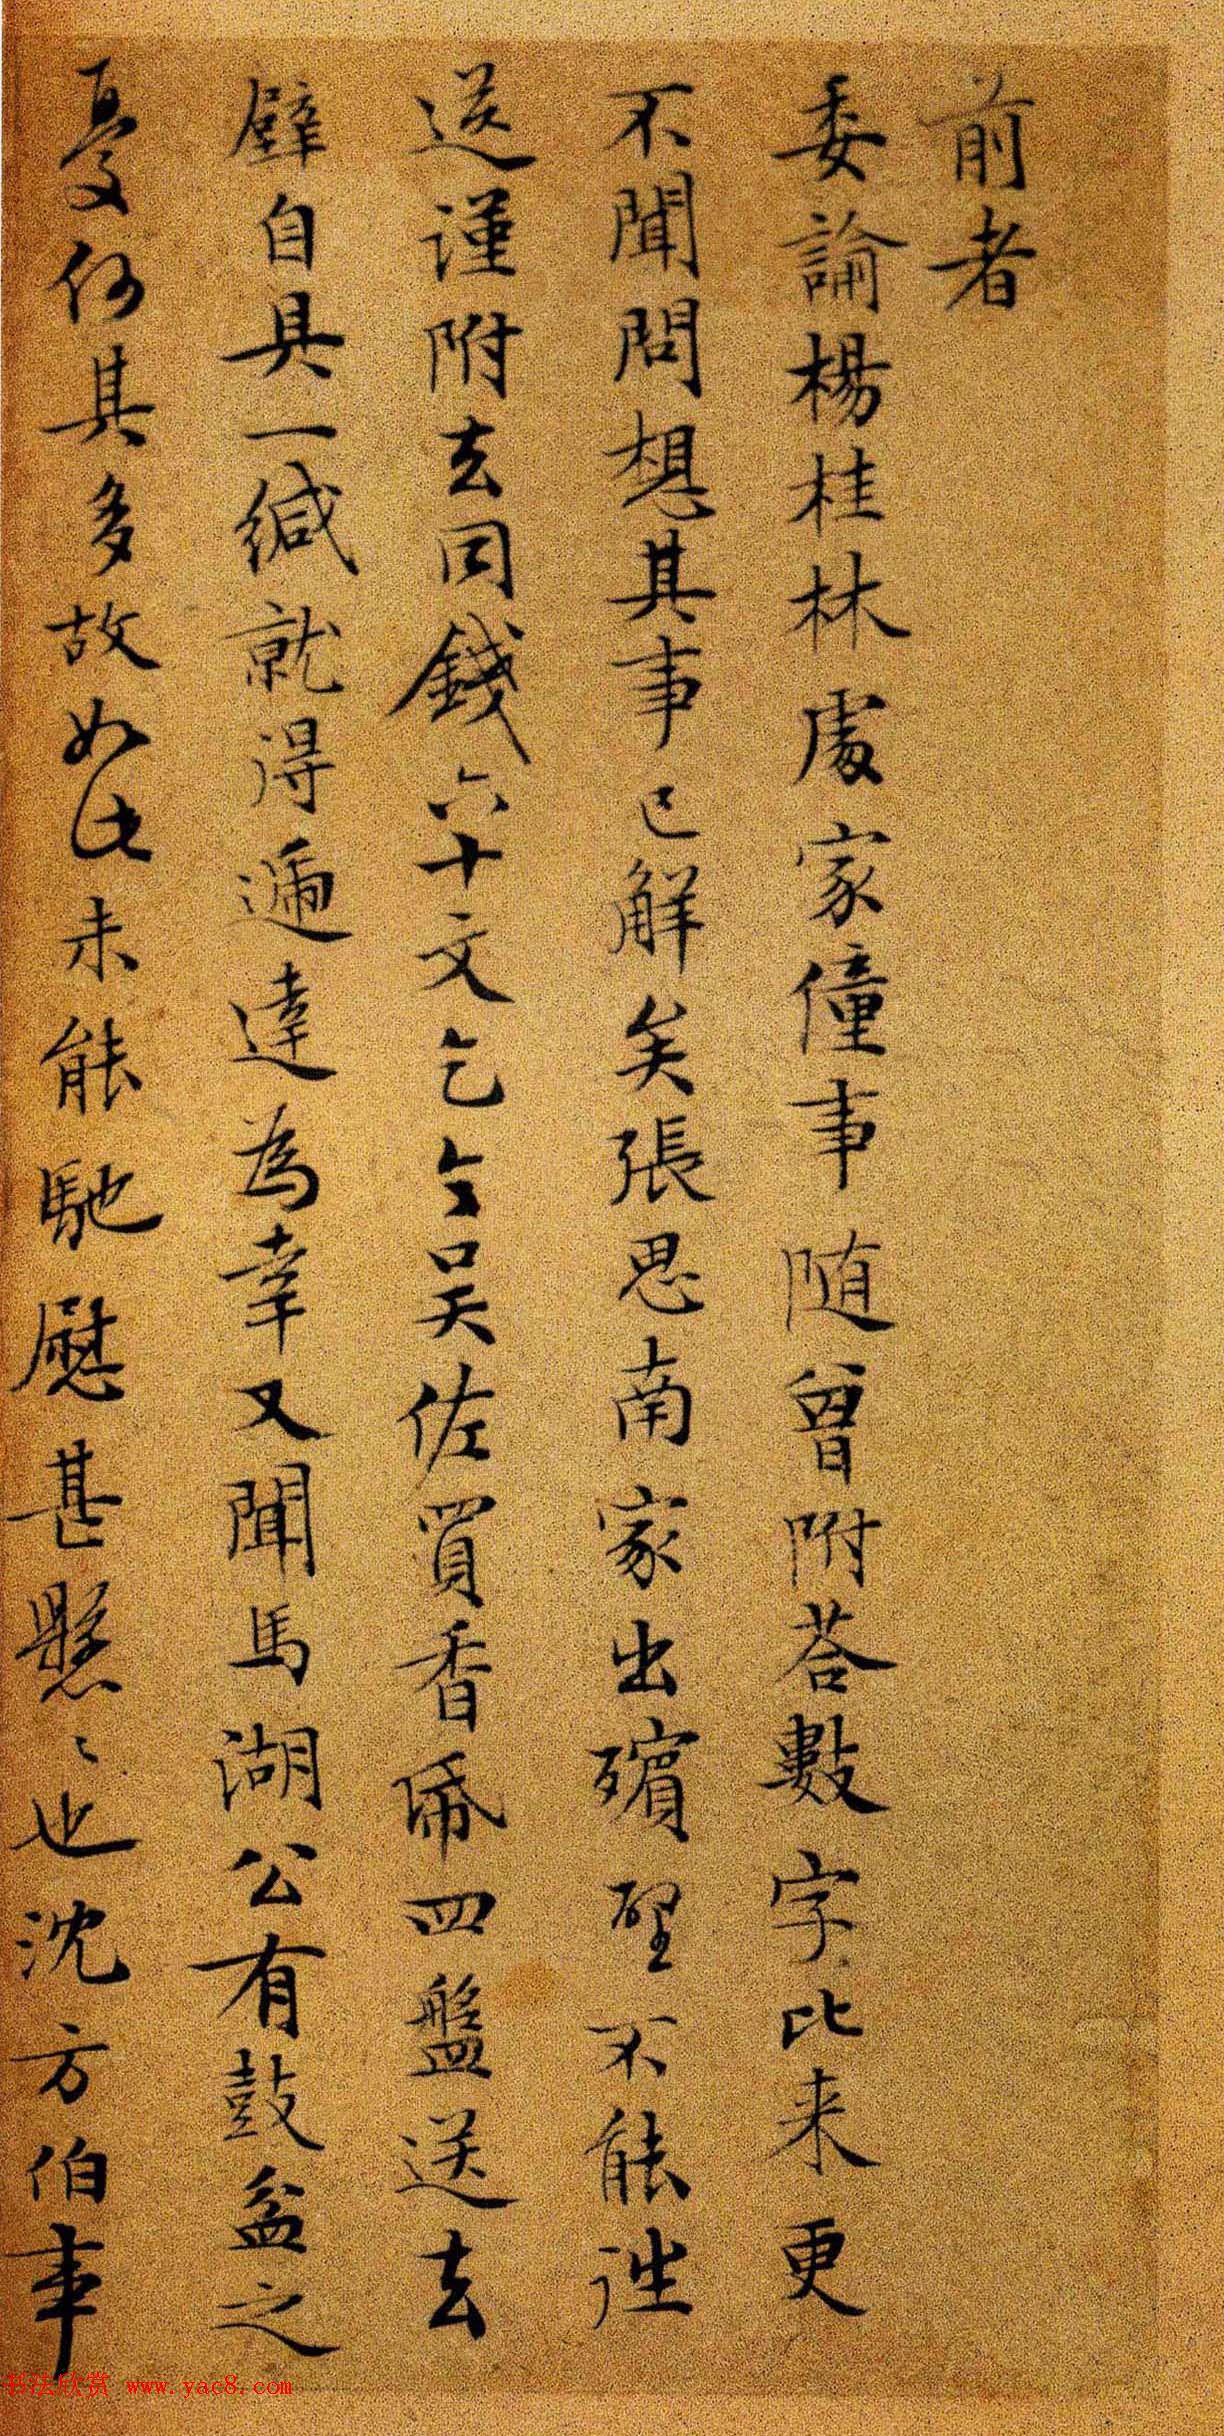 前者
委論楊桂林處家僮事隨曾附荅數字比来更
不聞問想其事已解矣張思南家出殯聖不能
送謹附去同錢六十文乞令吳佐買香帋四盤送去
聖自具一緘就得遞達為幸又聞馬湖公有鼓盆之
憂何其多故如此未能馳慰甚懸〻也沈方伯事
书法欣赏 www.yac8.com